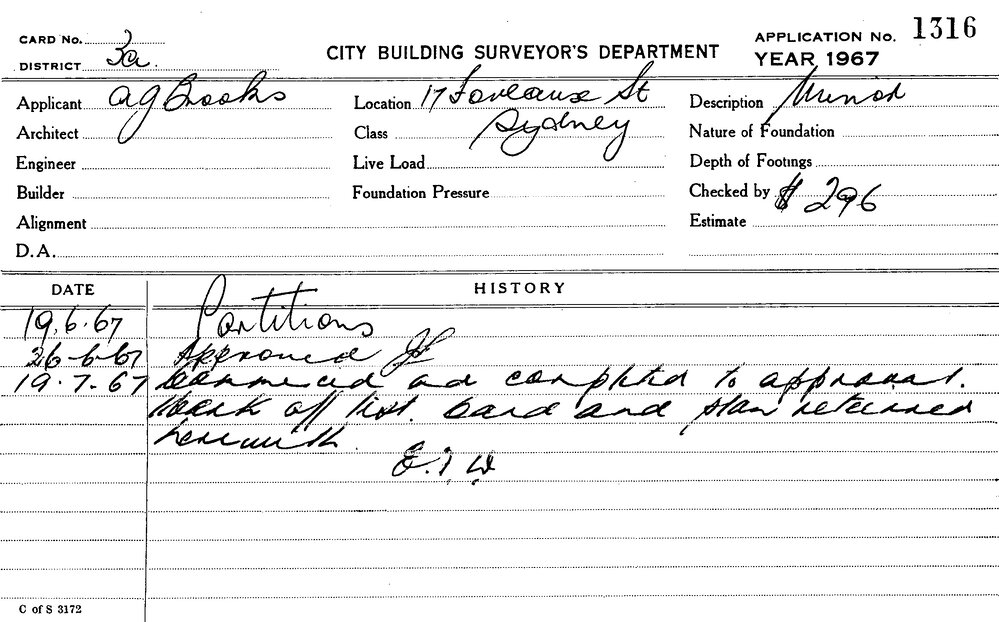 CARD No.
DISTRICT 3a.
CITY BUILDING SURVEYOR'S DEPARTMENT
APPLICATION No. 1316
YEAR 1967
Applicant A G Brooks
Location 17 Foveaux St
Description Minor
Architect
Class Sydney
Nature of Foundation
Engineer
Live Load
Depth of Footings
Builder
Foundation Pressure
Checked by $ 296
Alignment
Estimate
D.A.
DATE
HISTORY
19.6.67 Partitions
26-6-67 Approved
19.7.67 Commenced and completed to approval.
Mark off list. Card and plan returned
herewith.
E.T.W.
C of S 3172